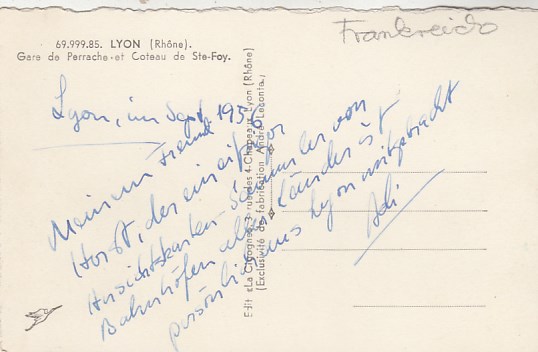 69.999.85. LYON (Rhône).
Gare de Perrache et Coteau de Ste-Foy.
Frankreich
Lyon, im Sept 1956
Meinem Freund
Horst, der ein eifriger
Ansichtskarten-Sammler von
Bahnhöfen aller Länder ist
persönlich aus Lyon mitgebracht
Adi
Edit. «La Cigogne», 3 rue des 4-Chapeaux Lyon (Rhône)
(Exclusivité de fabrication André Leconte.)